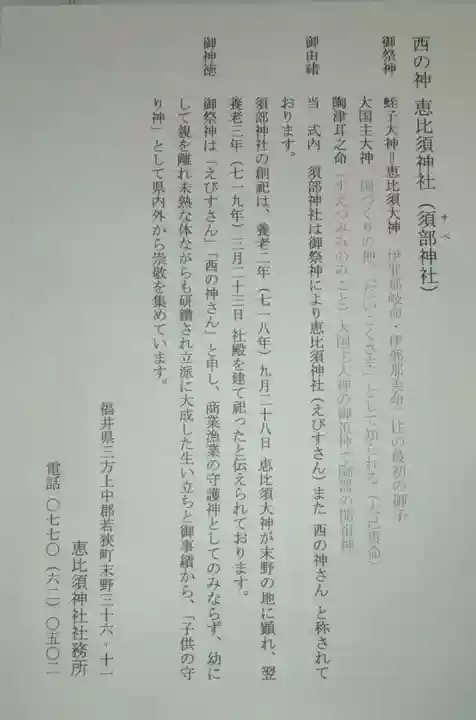 西の神 恵比須神社（須部神社）
すべ
御祭神 蛭子大神＝恵比須大神 伊邪那岐命・伊邪那美命二柱の最初の御子
大国主大神 国づくりの神「だいこくさま」として知られる（大己貴命）
陶津耳之命（すえつみみのみこと）大国主大神の御祖神で陶器の
御由緒 当 式内 須部神社は御祭神により恵比須神社（えびすさん）また 西の神さん と称されて
おります。
須部神社の創祀は、養老二年（七一八年）九月二十八日 恵比須大神が末野の地に顕れ、翌
養老三年（七一九年）三月二十三日 社殿を建て祀ったと伝えられております。
御神徳 御祭神は「えびすさん」「西の神さん」と申し、商業漁業の守護神としてのみならず、幼に
して親を離れ未熟な体ながらも研鑽され立派に大成した生い立ちと御事績から、「子供の守
り神」として県内外から崇敬を集めています。
福井県三方上中郡若狭町末野三十六・十一
恵比須神社社務所
電話 〇七七〇（六二）〇五〇二